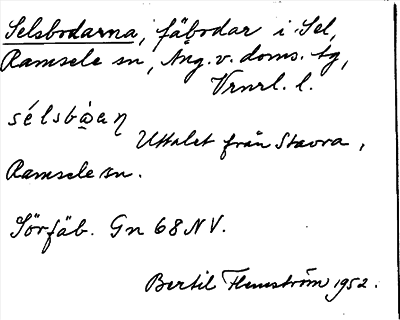 Selsbodarna, fäbodar i Sel,
Ramsele sn, Ång. v. doms. tg,
Vrnrl. l.
sélsbòan
Uttalet från Stavra,
Ramsele sn.
Sörfäb. Gn 68 NV.
Bertil Flemström 1952.